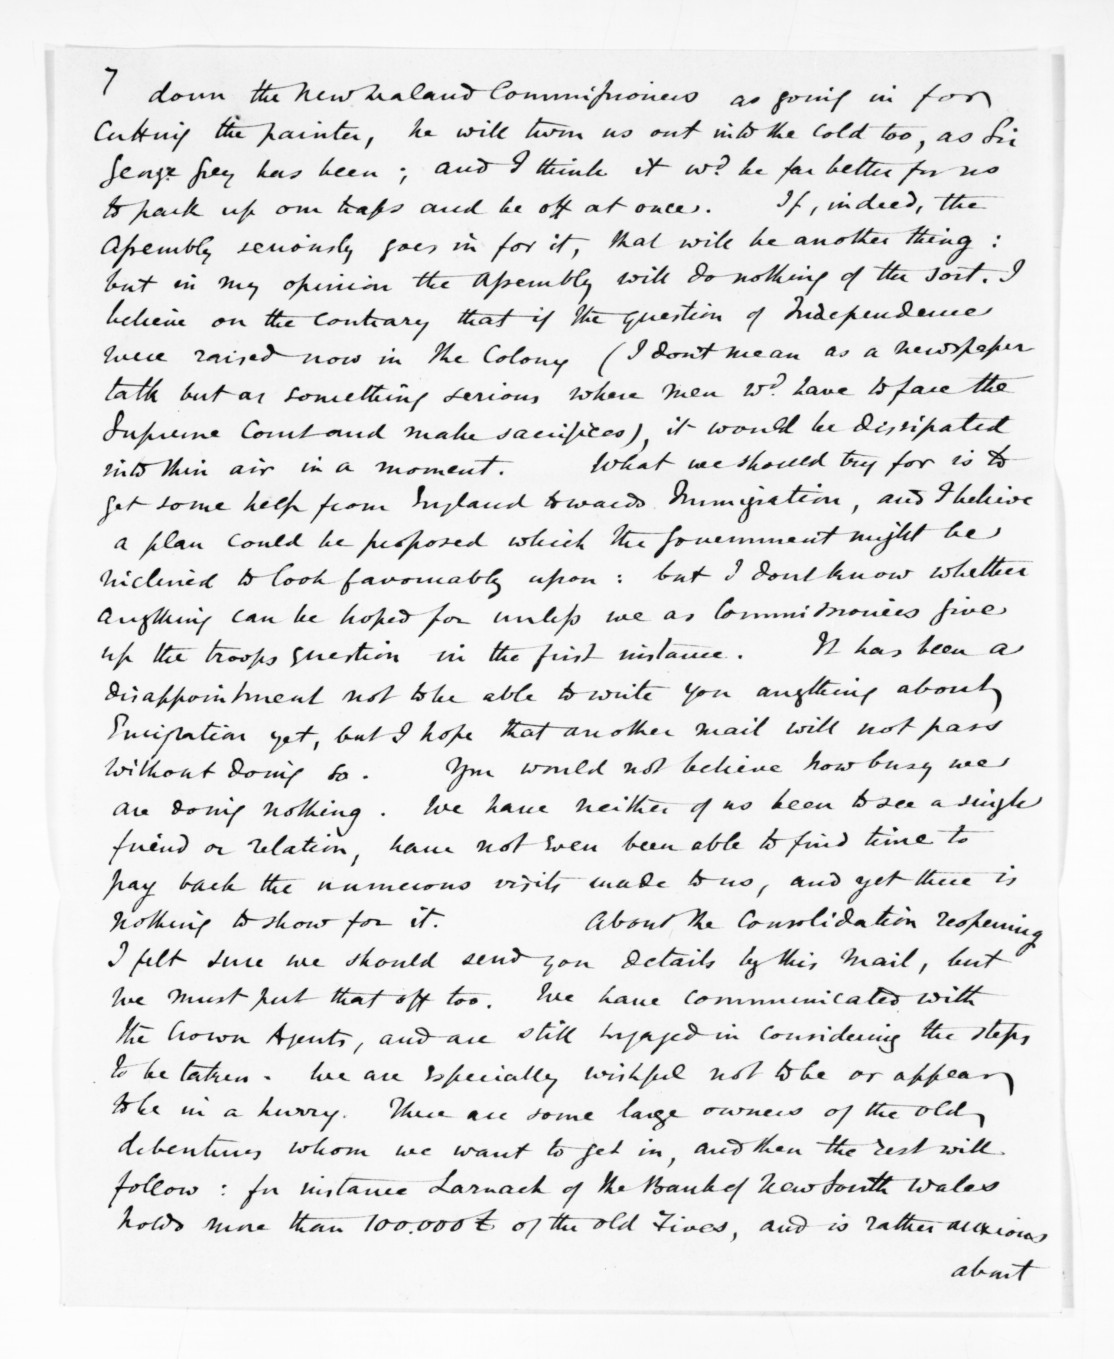 7
down the New Zealand Commissioners as going in for
Cutting the painter, he will turn us out into the cold too, as Sir
George Grey has been; and I think it wd. be far better for us
to pack up our traps and be off at once. If, indeed, the
Assembly seriously goes in for it, that will be another thing:
but in my opinion the Assembly will do nothing of the sort. I
believe on the contrary that if the question of Independence
were raised now in the Colony (I dont mean as a newspaper
talk but as something serious where men wd. have to face the
Supreme Court and make sacrifices), it would be dissipated
into thin air in a moment. What we should try for is to
get some help from England towards Immigration, and I believe
a plan could be proposed which the Government might be
inclined to look favourably upon: but I dont know whether
anything can be hoped for unless we as Commissioners give
up the troops question in the first instance. It has been a
disappointment not to be able to write you anything about
Emigration yet, but I hope that another mail will not pass
without doing so. You would not believe how busy we
are doing nothing. We have neither of us been to see a single
friend or relation, have not even been able to find time to
pay back the numerous visits made to us, and yet there is
nothing to show for it. About the Consolidation reopening
I felt sure we should send you details by this Mail, but
we must put that off too. We have communicated with
the Crown Agents, and are still engaged in considering the steps
to be taken. We are especially wishful not to be or appear
to be in a hurry. There are some large owners of the old
debentures whom we want to get in, and then the rest will
follow: for instance Larnach of the Bank of New South Wales
holds more than 100.000£ of the old Fives, and is rather anxious
about